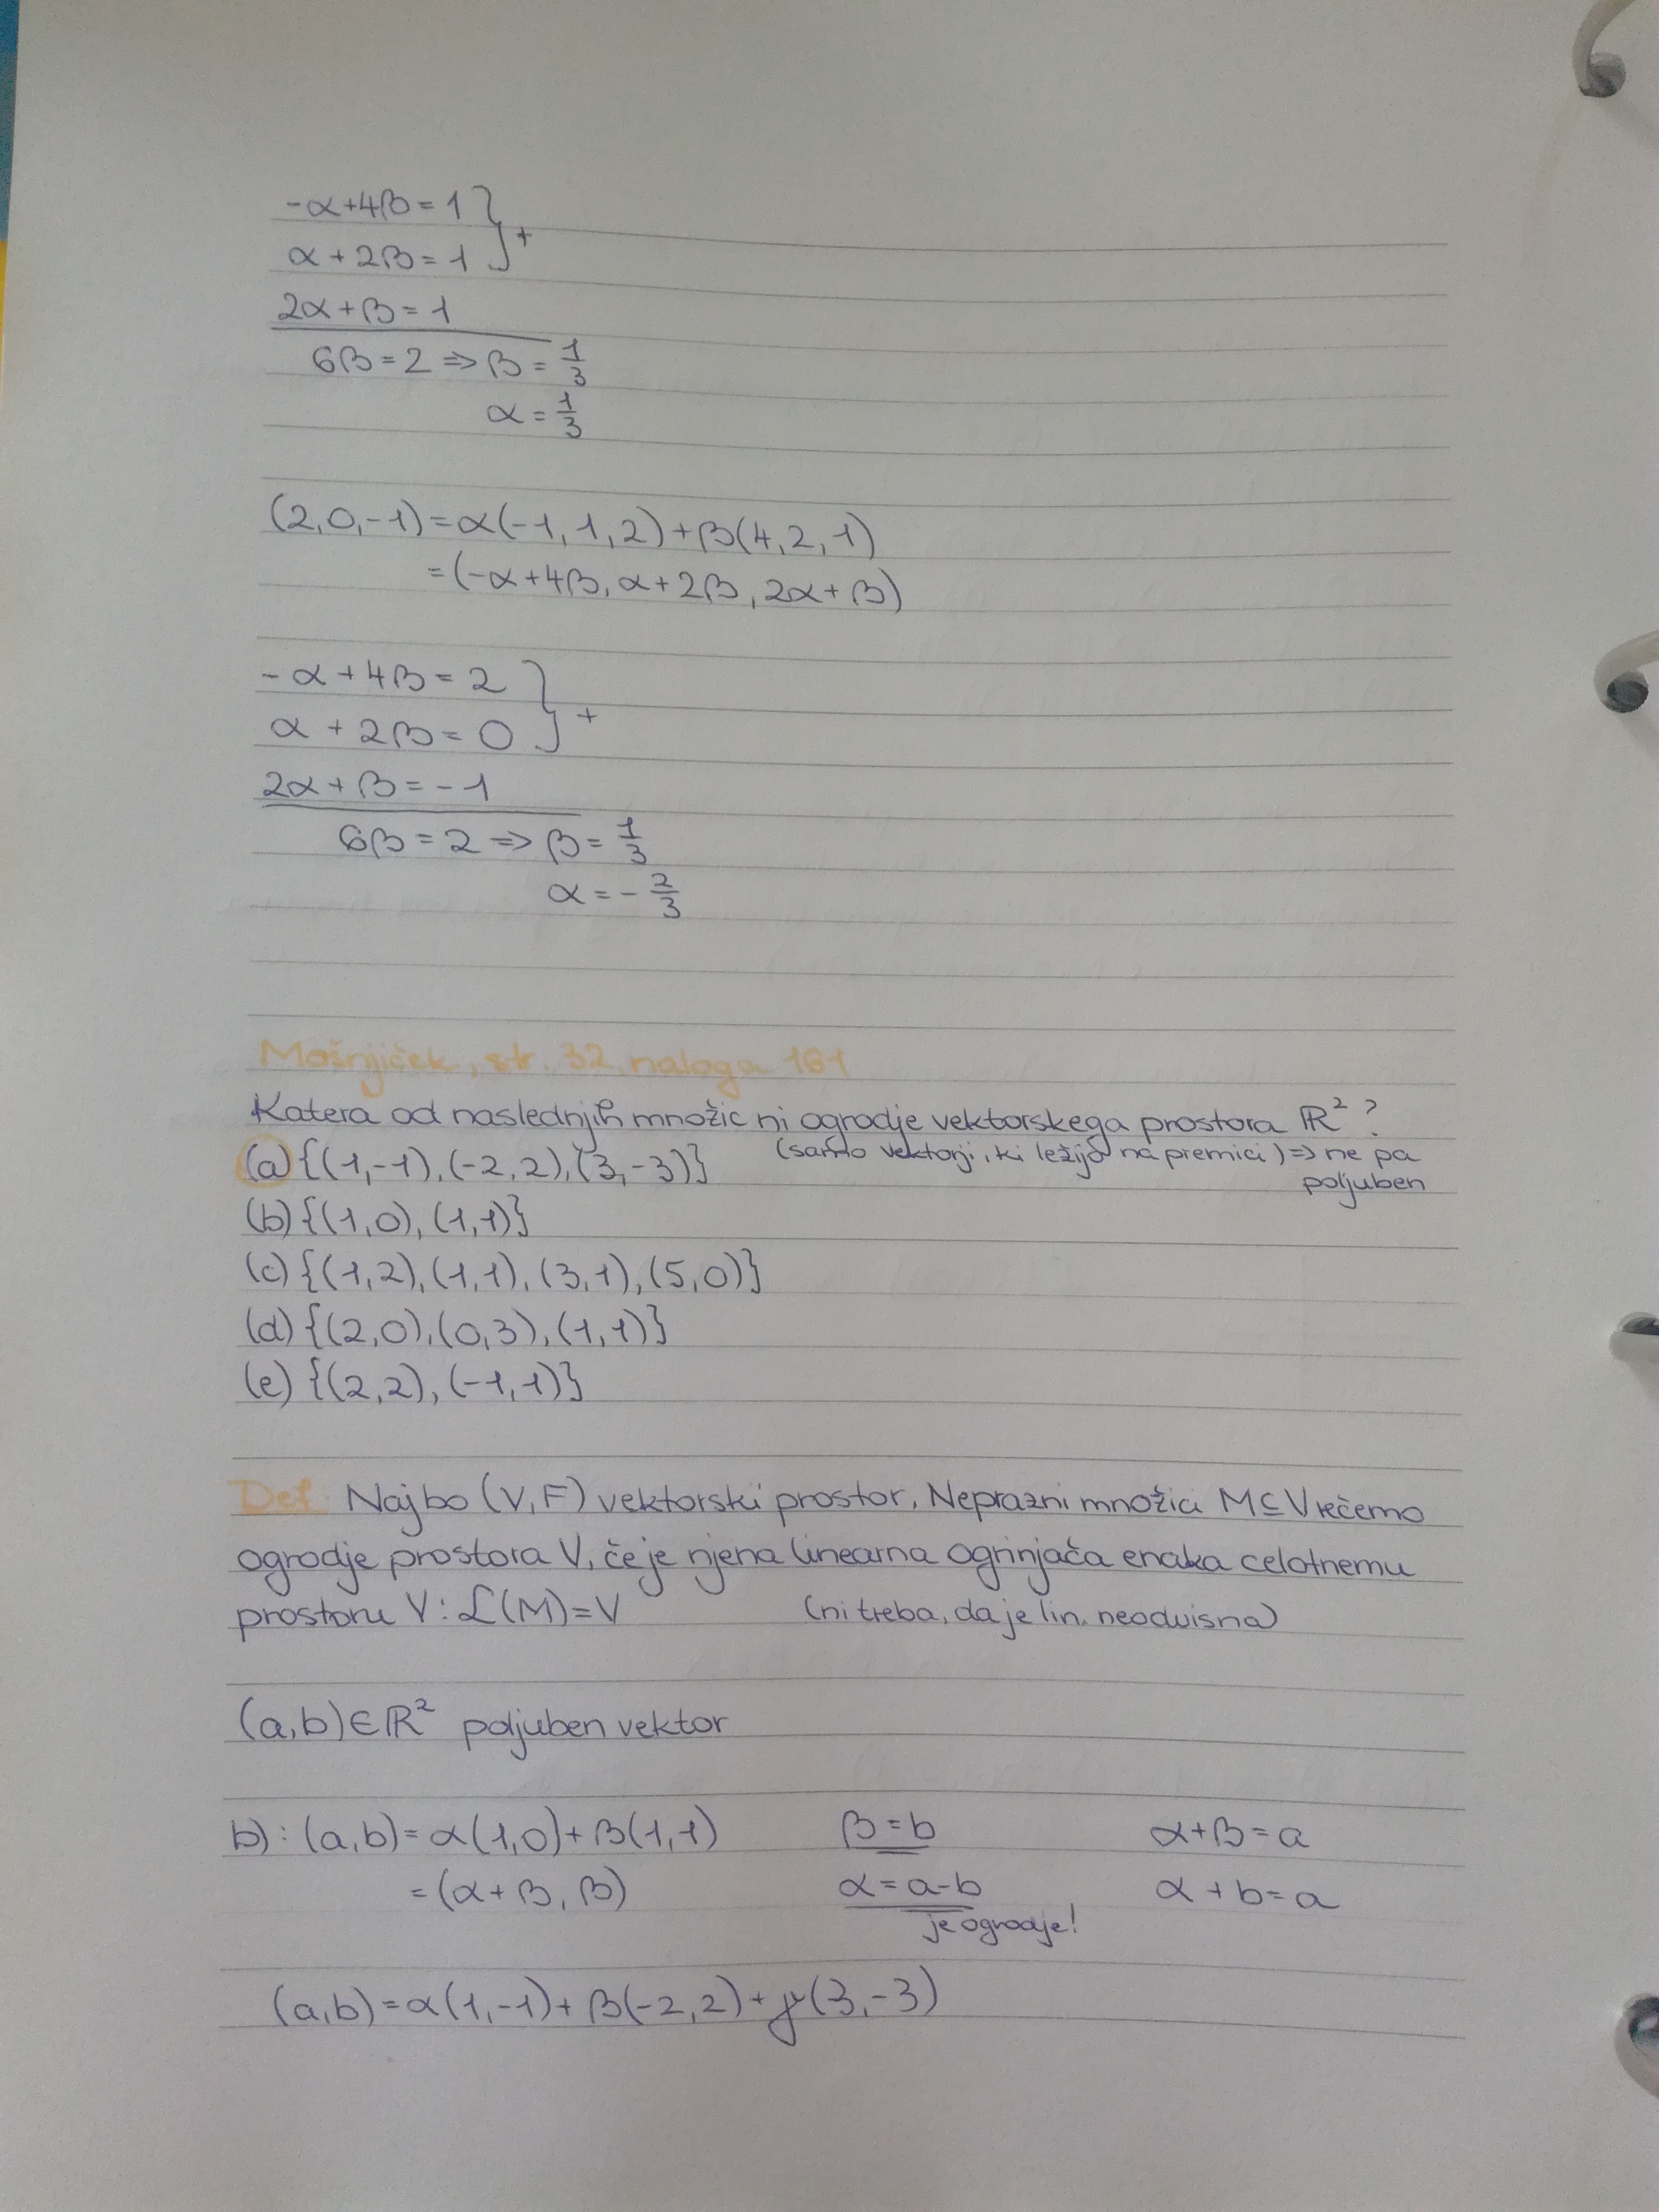 -α+4β=1 } +
α+2β=1
2α+β=1
6β=2 => β=1/3
α=1/3
(2,0,-1)=α(-1,1,2)+β(4,2,1)
=(-α+4β, α+2β, 2α+β)
-α+4β=2 } +
α+2β=0
2α+β=-1
6β=2 => β=1/3
α=-2/3
Mošnjiček, str. 32, naloga 161
Katera od naslednjih množic ni ogrodje vektorskega prostora ℝ²?
(a) {(1,-1),(-2,2),(3,-3)} (samo vektorji, ki ležijo na premici) => ne pa
poljuben
(b) {(1,0),(1,1)}
(c) {(1,2),(1,1),(3,1),(5,0)}
(d) {(2,0),(0,3),(1,1)}
(e) {(2,2),(-1,1)}
Def: Naj bo (V,F) vektorski prostor. Neprazni množici M⊆V rečemo
ogrodje prostora V, če je njena linearna ogrinjača enaka celotnemu
prostoru V: ℒ(M)=V (ni treba, da je lin. neodvisna)
(a,b)∈ℝ² poljuben vektor
b): (a,b)=α(1,0)+β(1,1) β=b α+β=a
=(α+β, β) α=a-b α+b=a
je ogrodje!
(a,b)=α(1,-1)+β(-2,2)+γ(3,-3)